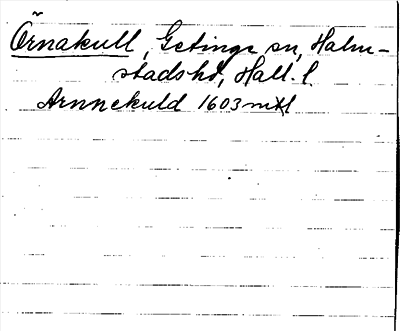 Örnakull, Getinge sn, Halm-
stadshd, Hall. l.
Arnnekuld 1603 mtl